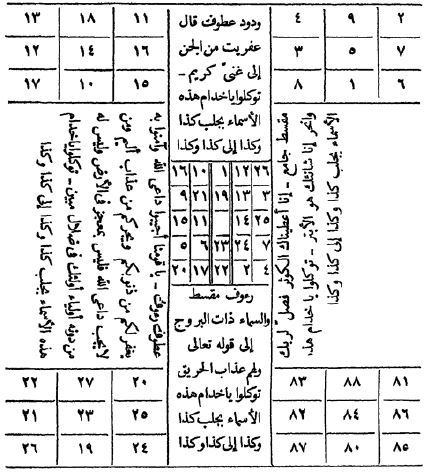 ٢ ٩ ٤
٧ ٥ ٣
٦ ١ ٨
مقسط جامع - إنا أعطيناك الكوثر فصل لربك
وانحر إن شانئك هو الأبتر - توكلوا يا خدام هذه
الأسماء بجلب كذا وكذا إلى كذا وكذا
٨١ ٨٨ ٨٣
٨٦ ٨٤ ٨٢
٨٥ ٨٠ ٨٧
ودود عطوف قال
عفريت من الجن
إلى غنىّ كريم -
توكلوا يا خدام هذه
الأسماء بجلب كذا
وكذا إلى كذا وكذا
٢٦ ١٢ ١ ١٠ ١٦
٣ ١٣ ١٩ ٢١ ٩
٢٥ ١٤ ١١ ١٥
٧ ٢٤ ٢٣ ٦ ٥
٤ ٢ ٢٢ ١٧ ٢٠
رءوف مقسط
والسماء ذات البروج
إلى قوله تعالى
ولهم عذاب الحريق
توكلوا يا خدام هذه
الأسماء بجلب كذا
وكذا إلى كذا وكذا
١١ ١٨ ١٣
١٦ ١٤ ١٢
١٥ ١٠ ١٧
عطوف رءوف - يا قومنا أجيبوا داعى الله وآمنوا به
يغفر لكم من ذنوبكم ويجركم من عذاب أليم ومن
لا يجب داعى الله فليس بمعجز فى الأرض وليس له
من دونه أولياء أولئك فى ضلال مبين - توكلوا يا خدام
هذه الأسماء بجلب كذا وكذا إلى كذا وكذا
٢٠ ٢٧ ٢٢
٢٥ ٢٣ ٢١
٢٤ ١٩ ٢٦